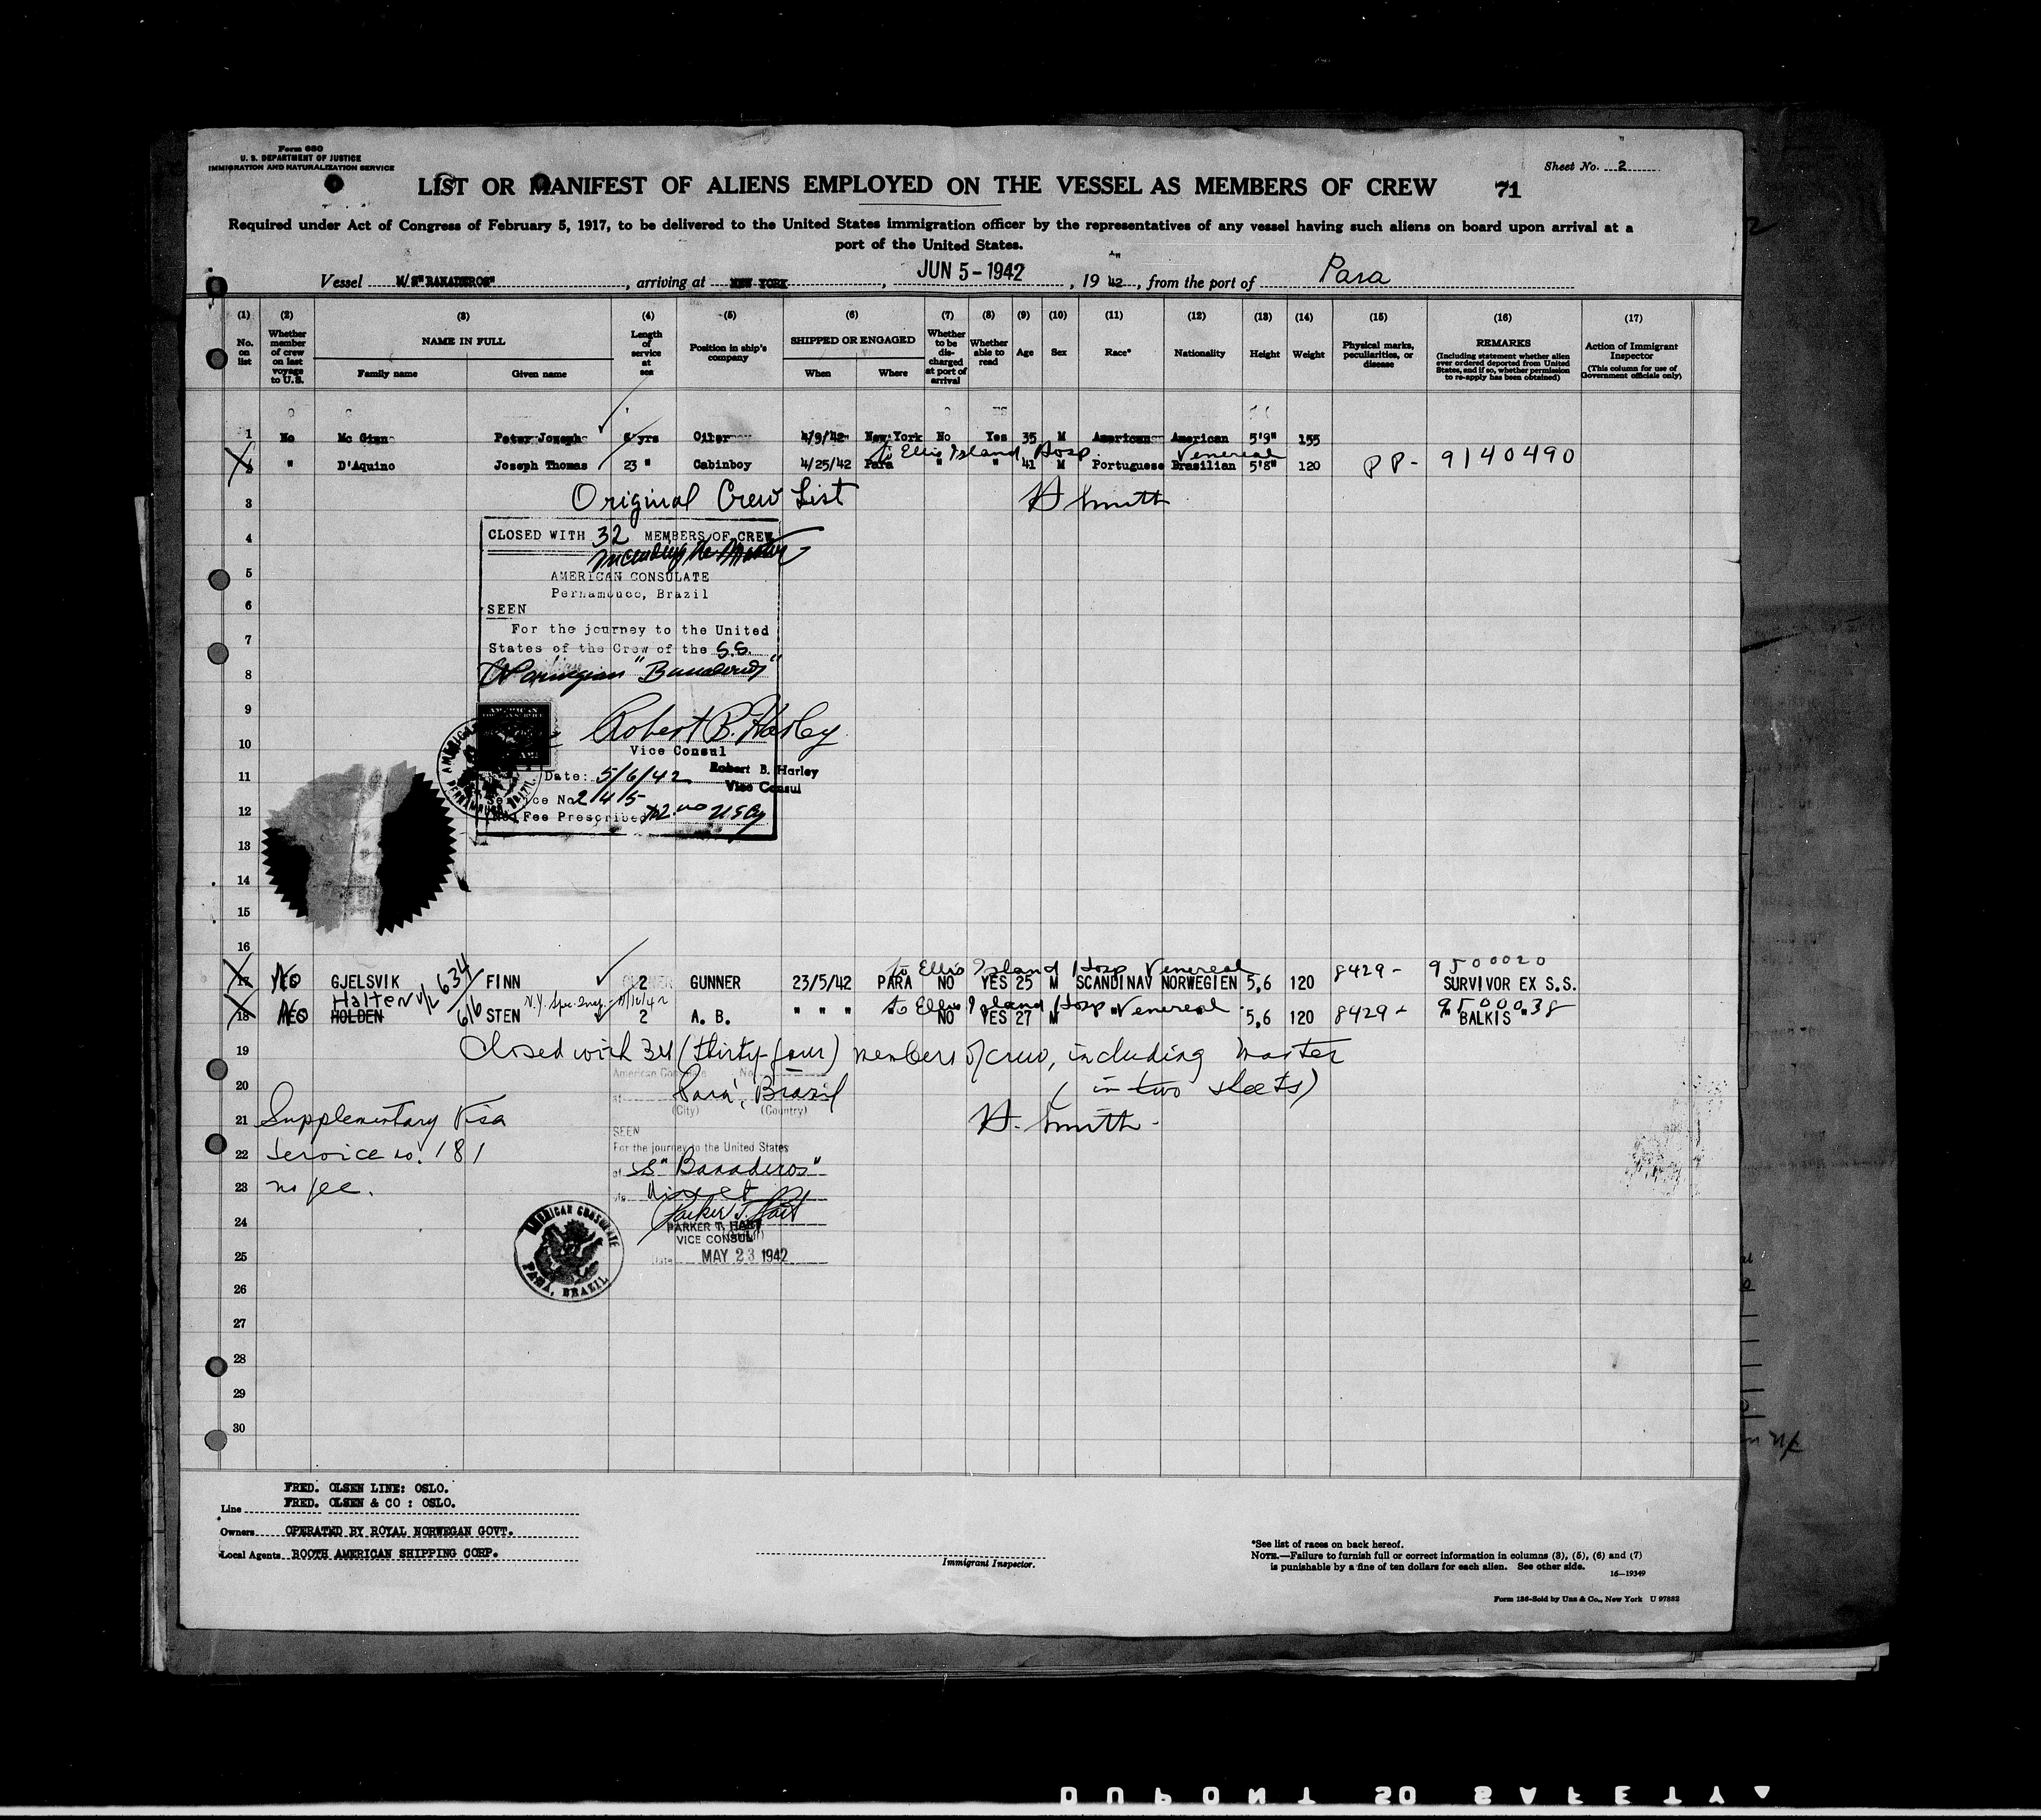 Form 680
U. S. DEPARTMENT OF JUSTICE
IMMIGRATION AND NATURALIZATION SERVICE
Sheet No. 2
LIST OR MANIFEST OF ALIENS EMPLOYED ON THE VESSEL AS MEMBERS OF CREW 71
Required under Act of Congress of February 5, 1917, to be delivered to the United States immigration officer by the representatives of any vessel having such aliens on board upon arrival at a
port of the United States.
Vessel M/S "BANADEROS", arriving at NEW YORK, JUN 5 - 1942, 19 42, from the port of Para
(1) (2) (3) (4) (5) (6) (7) (8) (9) (10) (11) (12) (13) (14) (15) (16) (17)
No. on list
Whether member of crew on last voyage to U.S.
NAME IN FULL
Family name Given name
Length of service at sea
Position in ship's company
SHIPPED OR ENGAGED
When Where
Whether to be discharged at port of arrival
Whether able to read
Age Sex Race* Nationality Height Weight
Physical marks, peculiarities, or disease
REMARKS
(Including statement whether alien ever ordered deported from United States, and if so, whether permission to re-apply has been obtained)
Action of Immigrant Inspector
(This column for use of Government officials only)
1 No Mc Ginn Peter Joseph 6 yrs Oiler 4/9/42 New York No Yes 35 M American American 5'9" 155
to Ellis Island Hosp Venereal
2 " D'Aquino Joseph Thomas 23 " Cabinboy 4/25/42 Para " " 41 M Portuguese Brasilian 5'8" 120 PP - 9140490
3 Original Crew List H Smith
4 CLOSED WITH 32 MEMBERS OF CREW
including the Master
5 AMERICAN CONSULATE
Pernambuco, Brazil
6 SEEN
7 For the journey to the United
States of the Crew of the S.S.
8 Norwegian "Banaderos"
9 Robert B. Harley
10 Vice Consul
11 Date: 5/6/42 Robert B. Harley
Vice Consul
Service No. 245
12 Fee Prescribed $2.00 US Cy
13
14
15
16
to Ellis Island Hosp Venereal
17 GJELSVIK 634 FINN 2 GUNNER 23/5/42 PARA NO YES 25 M SCANDINAV NORWEGIEN 5,6 120 8429 - 9500020 SURVIVOR EX S.S.
Halter N.Y. Spec. Inq.
to Ellis Island Hosp Venereal
18 HOLDEN 616 STEN 2 A. B. " " " " NO YES 27 M " " 5,6 120 8429 - 9500038 " BALKIS "
19 Closed with 34 (thirty-four) members of crew, including master
American Consulate No.
20 Para, Brazil (in two sheets)
at (City) (Country)
21 Supplementary Visa H. Smith
SEEN
22 Service no. 181 For the journey to the United States
of SS "Banaderos"
23 no fee.
Parker T. Hart
24 PARKER T. HART
VICE CONSUL
25 Date MAY 23 1942
AMERICAN CONSULATE
PARA, BRAZIL
26
27
28
29
30
FRED. OLSEN LINE: OSLO.
Line FRED. OLSEN & CO : OSLO.
Owners OPERATED BY ROYAL NORWEGAN GOVT.
Local Agents BOOTH AMERICAN SHIPPING CORP.
Immigrant Inspector.
*See list of races on back hereof.
NOTE.—Failure to furnish full or correct information in columns (3), (5), (6) and (7)
is punishable by a fine of ten dollars for each alien. See other side.
16—19349
Form 136-Sold by Unz & Co., New York U 97882
DUPONT SO SAFETY